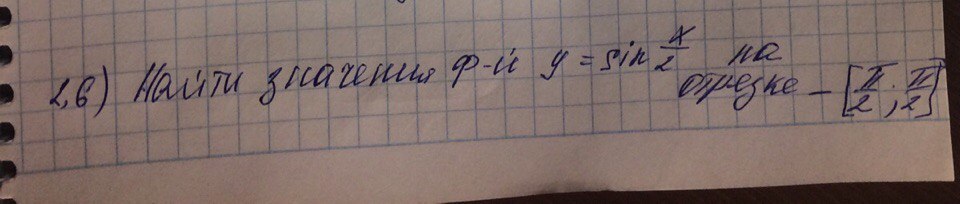 2,б) Найти значения ф-й y = sin x/2 на
отрезке - [π/2; π/2]